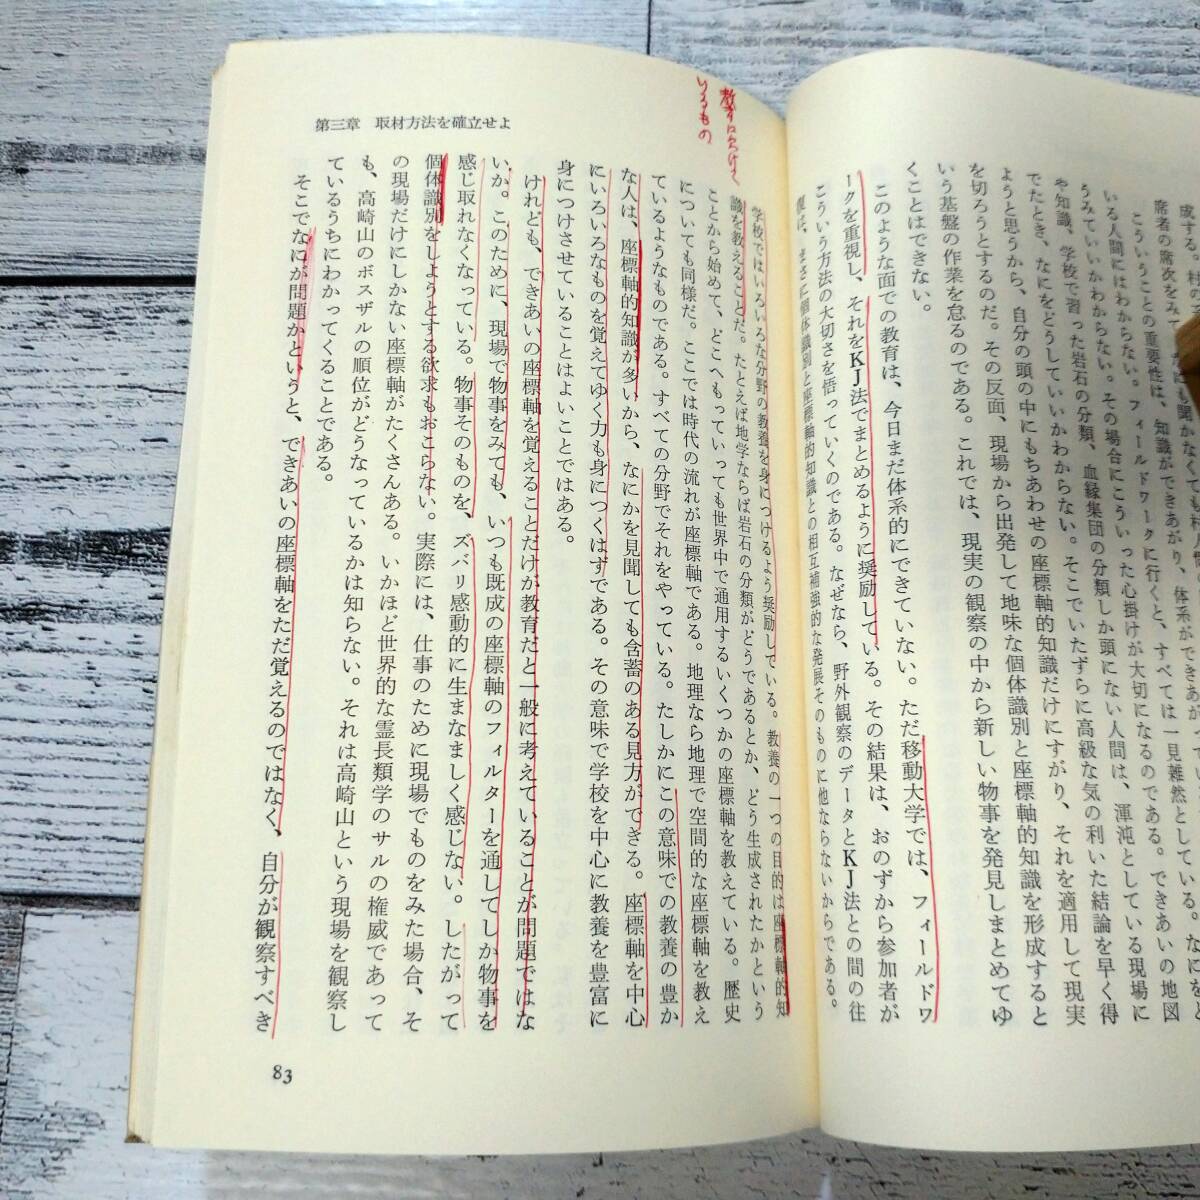 成する。村の
席者の席次をみて
こういうことの重要性は、知識ができあがり、体系ができあがっている。なにをと
いる人間にはわからない。フィールドワークに行くと、すべては一見雑然としている現場に
うみていいかわからない。その場合にこういった心掛けが大切になるのである。できあいの地図
や知識、学校で習った岩石の分類、血縁集団の分類しか頭にない人間は、渾沌としている現場に
でたとき、なにをどうしていいかわからない。そこでいたずらに高級な気の利いた結論を早く得
ようと思うから、自分の頭の中にもちあわせの座標軸的知識だけにすがり、それを適用して現実
を切ろうとするのだ。その反面、現場から出発して地味な個体識別と座標軸的知識を形成すると
いう基盤の作業を怠るのである。これでは、現実の観察の中から新しい物事を発見しまとめてゆ
くことはできない。
このような面での教育は、今日まだ体系的にできていない。ただ移動大学では、フィールドワ
ークを重視し、それをKJ法でまとめるように奨励している。その結果は、おのずから参加者が
こういう方法の大切さを悟っていくのである。なぜなら、野外観察のデータとKJ法との間の往
復は、まさに個体識別と座標軸的知識との相互補強的な発展そのものに他ならないからである。
教育に欠けて
いるもの
第三章 取材方法を確立せよ
学校ではいろいろな分野の教養を身につけるよう奨励している。教養の一つの目的は座標軸的知
識を教えることだ。たとえば地学ならば岩石の分類がどうであるとか、どう生成されたかという
ことから始めて、どこへもっていっても世界中で通用するいくつかの座標軸を教えている。歴史
についても同様だ。ここでは時代の流れが座標軸である。地理なら地理で空間的な座標軸を教え
ているようなものである。すべての分野でそれをやっている。たしかにこの意味での教養の豊か
な人は、座標軸的知識が多いから、なにかを見聞しても含蓄のある見方ができる。座標軸を中心
にいろいろなものを覚えてゆく力も身につくはずである。その意味で学校を中心に教養を豊富に
身につけさせていることはよいことではある。
けれども、できあいの座標軸を覚えることだけが教育だと一般に考えていることが問題ではな
いか。このために、現場で物事をみても、いつも既成の座標軸のフィルターを通してしか物事を
感じ取れなくなっている。物事そのものを、ズバリ感動的に生まなましく感じない。したがって
個体識別をしようとする欲求もおこらない。実際には、仕事のために現場でものをみた場合、そ
の現場だけにしかない座標軸がたくさんある。いかほど世界的な霊長類学のサルの権威であって
も、高崎山のボスザルの順位がどうなっているかは知らない。それは高崎山という現場を観察し
ているうちにわかってくることである。
そこでなにが問題かというと、できあいの座標軸をただ覚えるのではなく、自分が観察すべき
83